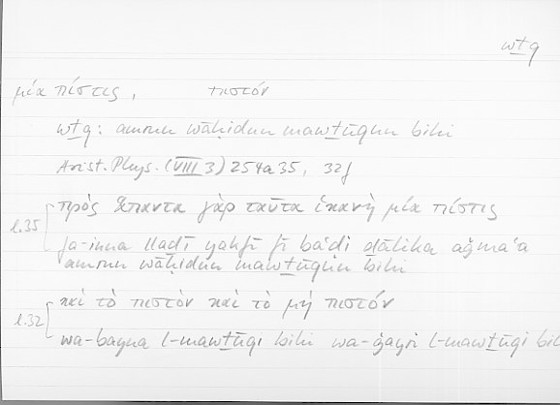 wṯq
μία πίστις, πιστόν
wṯq: amrun wāḥidun mawṯūqun bihi
Arist. Phys. (VIII 3) 254a35, 32f
l.35 πρὸς ἅπαντα γὰρ ταῦτα ἱκανὴ μία πίστις
fa-inna lladī yakfī fī bādi dālika aǧma'a
amrun wāḥidun mawṯūqun bihi
l.32 καὶ τὸ πιστὸν καὶ τὸ μὴ πιστόν
wa-bayna l-mawṯūqi bihi wa-ġayri l-mawṯūqi bih